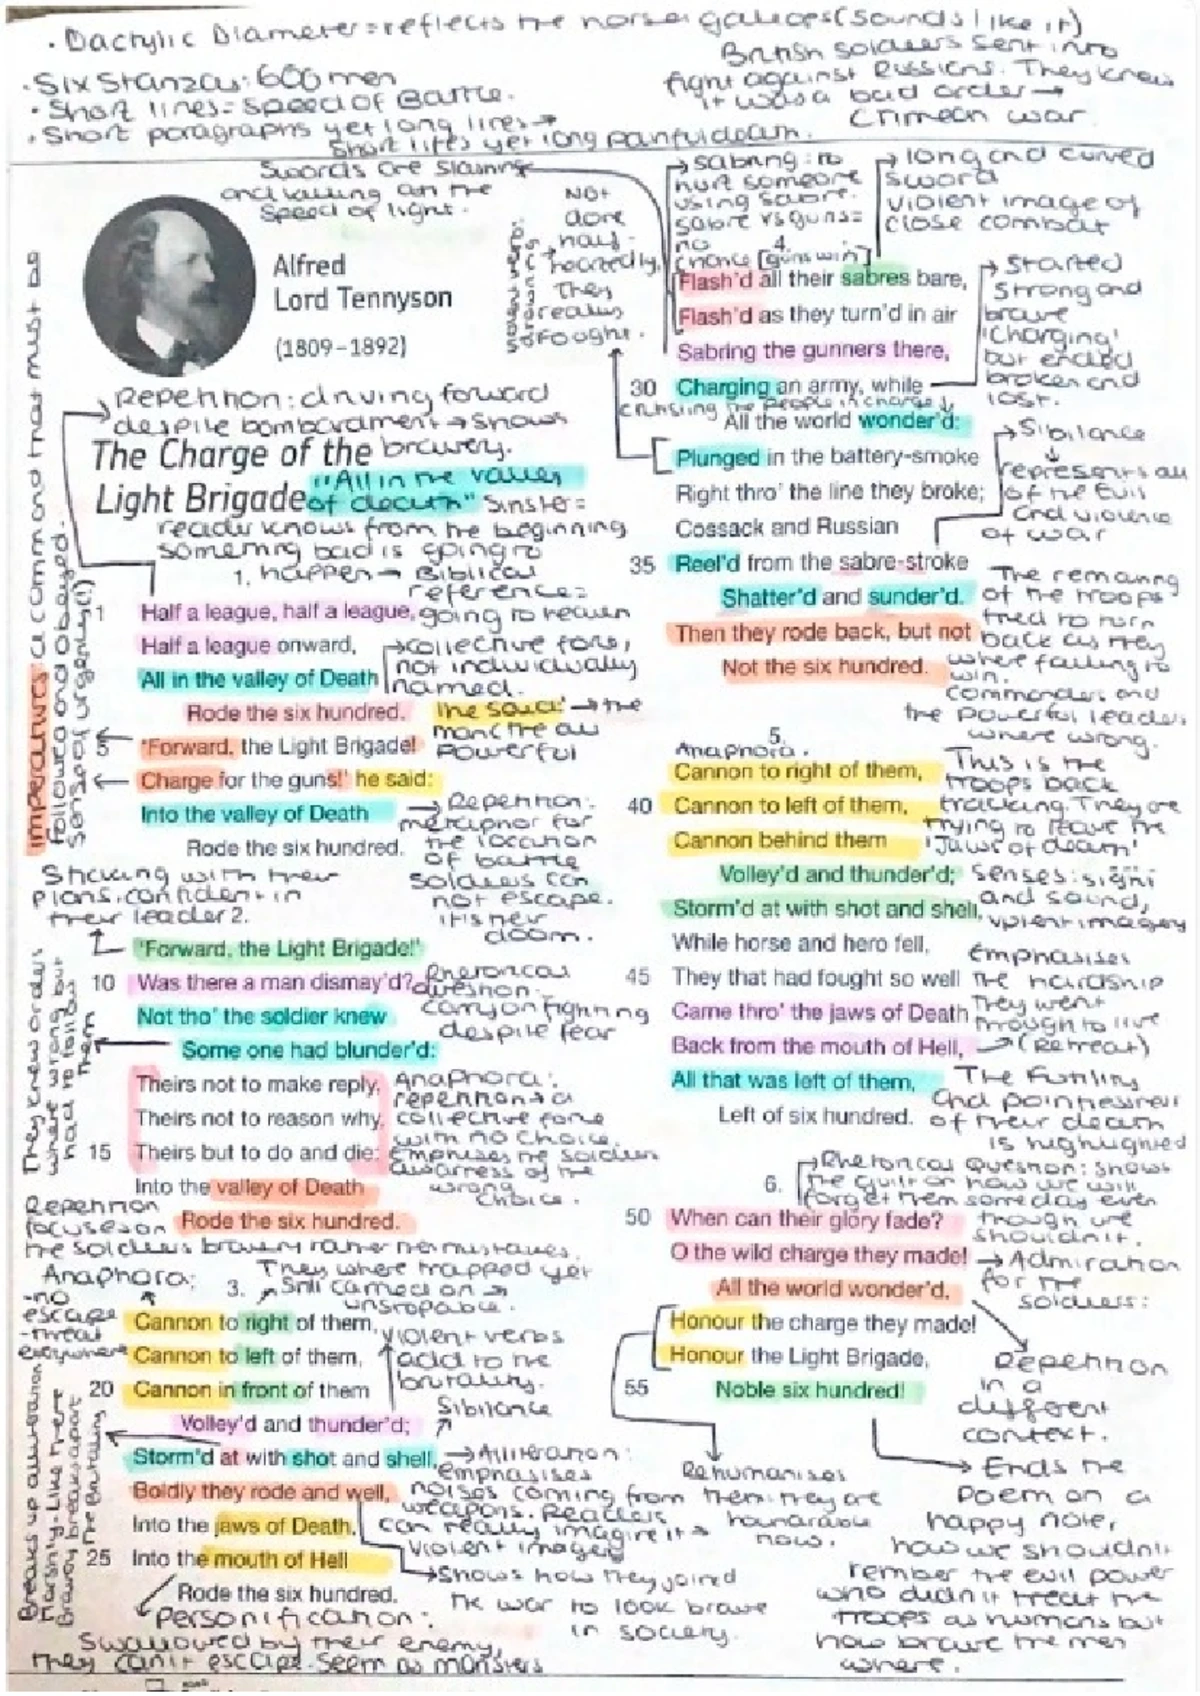 · Dactylic Diameter = reflects the horse gallops (sounds like it)
· Six Stanzas: 600 men
· Short lines = speed of Battle.
· Short paragraphs yet long lines →
short lifes yet long painful death.
British soldiers sent into
fight against Russians. They knew
it was a bad order →
Crimean war.
Swords are slaming
and falling at the
speed of light.
Not
done
half-
heartedly,
They
really
fought.
→ sabring: to
hurt someone
using sabre.
sabre vs guns =
no
chance [guns win]
→ long and curved
sword
violent image of
close combat
Alfred
Lord Tennyson
(1809–1892)
→ Repetition: driving forward
despite bombardment → shows
bravery.
The Charge of the
Light Brigade
"All in the valley
of death" Sinster =
reader knows from the beginning
something bad is going to
happen → Biblical
reference =
going to heaven
imperatives a command that must be
followed and obeyed.
sense of urgency (!)
1.
1 Half a league, half a league,
Half a league onward,
All in the valley of Death
Rode the six hundred.
5 'Forward, the Light Brigade!
Charge for the guns!' he said:
Into the valley of Death
Rode the six hundred.
→ collective force,
not individually
named.
'he said' → the
man the all
powerful
→ Repetition:
metaphor for
the location
of battle
soldiers can
not escape.
it is their
doom.
Sharing with their
plans. confident in
their leader
2.
'Forward, the Light Brigade!'
10 Was there a man dismay'd?
Not tho' the soldier knew
Some one had blunder'd:
Theirs not to make reply,
Theirs not to reason why,
15 Theirs but to do and die:
Into the valley of Death
Rode the six hundred.
Rhetorical
question:
carry on fighting
despite fear
They knew orders
where wrong but
had to follow
them
Anaphora:
repetition → a
collective force
with no choice.
Emphises the soldiers
awarness of the
wrong
choice.
Repetition
focuses on
the soldiers bravery rather then mistakes.
Anaphora:
-no
escape
-threat
everywhere
They where trapped yet
still carried on →
unstopable.
3.
Cannon to right of them,
Cannon to left of them,
20 Cannon in front of them
Volley'd and thunder'd;
Storm'd at with shot and shell,
Boldly they rode and well,
Into the jaws of Death,
25 Into the mouth of Hell
Rode the six hundred.
violent verbs
add to the
brutality.
Sibilance
→ Alliteration:
emphasises
noises coming from
weapons. Readers
can really imagine it →
violent imagery
→ Shows how they joined
the war to look brave
in society.
Breaks up alliteration
harshly. Like there
bravory breaks apart
the brutality
Personification:
swallowed by their enemy,
they can't escape. Seem as monsters
4.
Flash'd all their sabres bare,
Flash'd as they turn'd in air
Sabring the gunners there,
30 Charging an army, while
All the world wonder'd:
Plunged in the battery-smoke
Right thro' the line they broke;
Cossack and Russian
35 Reel'd from the sabre-stroke
Shatter'd and sunder'd.
Then they rode back, but not
Not the six hundred.
→ Started
strong and
brave
'Charging'
but ended
broken and
lost.
the people in charge
→ Sibilance
represents all
of the evil
and violence
of war
The remaning
of the troops
tried to turn
back as they
where failing to
win.
commanders and
the powerful leaders
where wrong.
5.
Anaphora.
Cannon to right of them,
40 Cannon to left of them,
Cannon behind them
Volley'd and thunder'd;
Storm'd at with shot and shell,
While horse and hero fell,
45 They that had fought so well
Came thro' the jaws of Death
Back from the mouth of Hell,
All that was left of them,
Left of six hundred.
This is the
troops back
tracking. They are
trying to leave the
'Jaws of death'
senses: sight
and sound,
violent imagery
Emphasises
the hardship
They went
through to live
→ (Retreat)
The futility
and pointlessness
of their death
is highlighted
6.
→ Rhetorical Question: shows
the guilt on how we will
forget them someday even
though we
shouldn't.
50 When can their glory fade?
O the wild charge they made!
All the world wonder'd.
Honour the charge they made!
Honour the Light Brigade,
55 Noble six hundred!
→ Admiration
for the
soldiers:
Repetition
in a
different
context.
Rehumanises
them: they are
hounarable
now.
→ Ends the
poem on a
happy note,
how we shouldn't
rember the evil power
who didn't treat the
troops as humans but
how brave the men
where.